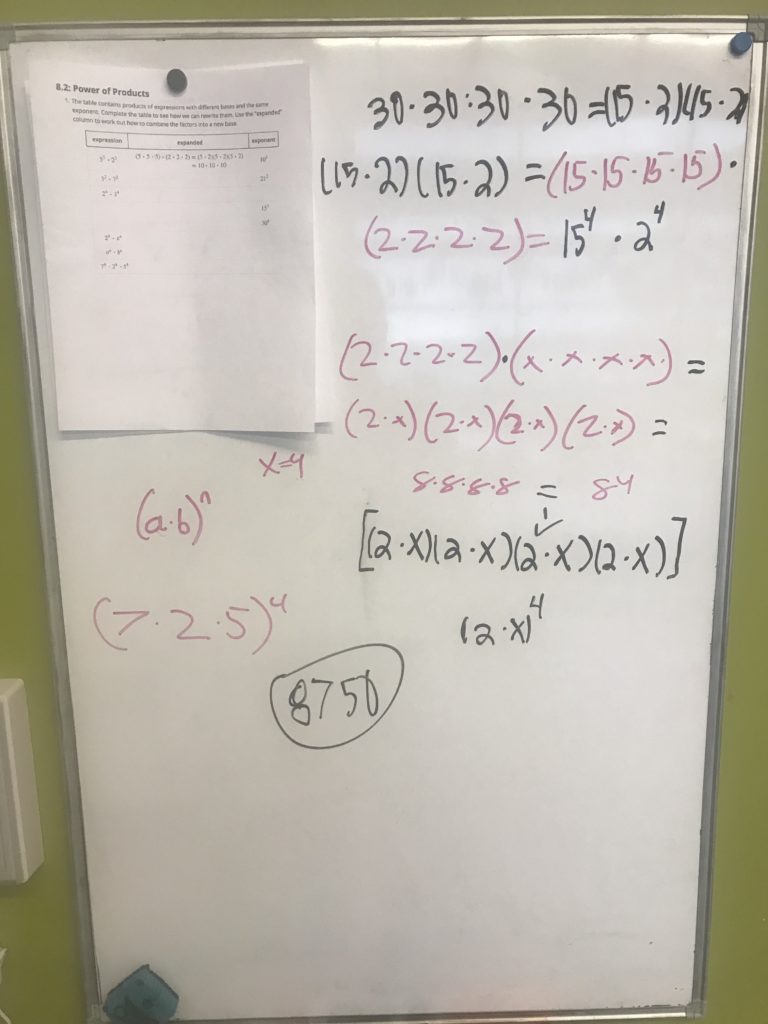 8.2: Power of Products
1. The table contains products of expressions with different bases and the same
exponent. Complete the table to see how we can rewrite them. Use the "expanded"
column to work out how to combine the factors into a new base.
expression expanded exponent
5³ · 2³ (5 · 5 · 5) · (2 · 2 · 2) = (5 · 2)(5 · 2)(5 · 2) 10³
= 10 · 10 · 10
3² · 7² 21²
2⁴ · 3⁴
15³
30⁴
2⁴ · x⁴
aⁿ · bⁿ
7⁴ · 2⁴ · 5⁴
30·30·30·30=(15·2)(15·2)
(15·2)(15·2)=(15·15·15·15)·
(2·2·2·2)=15⁴·2⁴
(2·2·2·2)·(x·x·x·x)=
(2·x)(2·x)(2·x)(2·x)=
8·8·8·8 = 84
[(2·x)(2·x)(2·x)(2·x)]
(2·x)⁴
x=4
(a·b)ⁿ
(7·2·5)⁴
8750